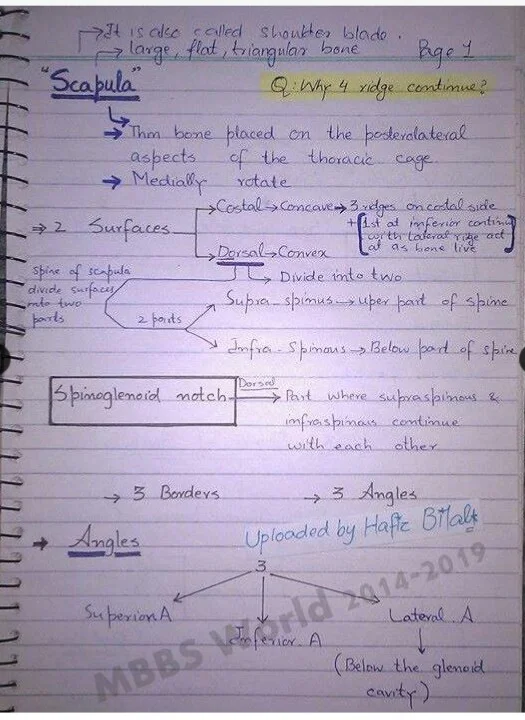 It is also called shoulder blade.
large, flat, triangular bone
Page 1
"Scapula"
Q: Why 4 ridge continue?
Thin bone placed on the posterolateral
aspects of the thoracic cage.
Medially rotate
2 Surfaces
Costal → Concave → 3 ridges on costal side
+ [1st at inferior continu
with lateral ridge act
at as bone live]
Dorsal → Convex
Divide into two
spine of scapula
divide surfaces
into two
parts
2 parts
Supra-spinus → uper part of spine
Infra-Spinous → Below part of spine
Spinoglenoid notch
Dorsal
Part where supraspinous &
infraspinous continue
with each other
→ 3 Borders → 3 Angles
Uploaded by Hafiz Bilal
→ Angles
3
Superior A
Inferior. A
Lateral. A
(Below the glenoid
cavity)
MBBS World 2014-2019